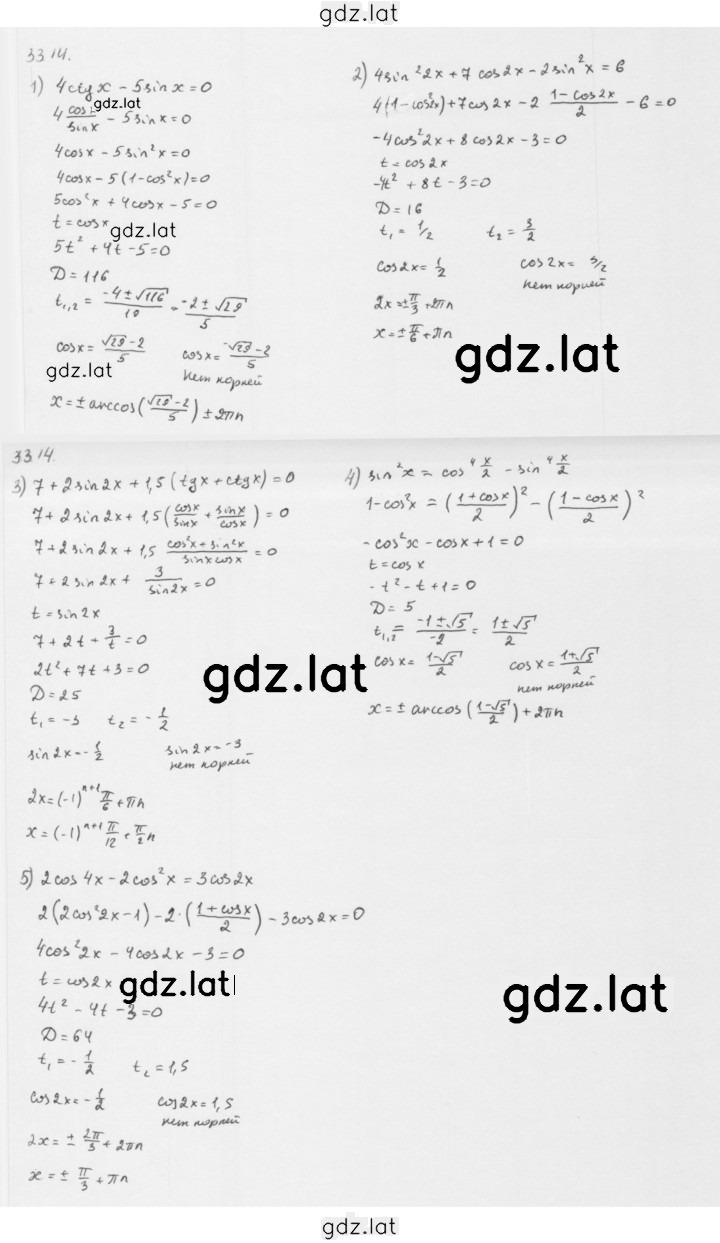 gdz.lat
33.14.
1) 4ctgx - 5sinx = 0
4 cosx/sinx - 5sinx = 0
4cosx - 5sin²x = 0
4cosx - 5(1-cos²x) = 0
5cos²x + 4cosx - 5 = 0
t = cosx
5t² + 4t - 5 = 0
D = 116
t₁,₂ = (-4 ± √116)/10 = (-2 ± √29)/5
cosx = (√29 - 2)/5 cosx = (-√29 - 2)/5
нет корней
x = ± arccos((√29 - 2)/5) ± 2πn
2) 4sin²2x + 7cos2x - 2sin²x = 6
4(1-cos²2x) + 7cos2x - 2 (1-cos2x)/2 - 6 = 0
-4cos²2x + 8cos2x - 3 = 0
t = cos2x
-4t² + 8t - 3 = 0
D = 16
t₁ = 1/2 t₂ = 3/2
cos2x = 1/2 cos2x = 3/2
нет корней
2x = ± π/3 + 2πn
x = ± π/6 + πn
gdz.lat
gdz.lat
gdz.lat
gdz.lat
33.14.
3) 7 + 2sin2x + 1,5(tgx + ctgx) = 0
7 + 2sin2x + 1,5(cosx/sinx + sinx/cosx) = 0
7 + 2sin2x + 1,5 (cos²x + sin²x)/(sinx cosx) = 0
7 + 2sin2x + 3/sin2x = 0
t = sin2x
7 + 2t + 3/t = 0
2t² + 7t + 3 = 0
D = 25
t₁ = -3 t₂ = -1/2
sin2x = -1/2 sin2x = -3
нет корней
2x = (-1)ⁿ⁺¹ π/6 + πn
x = (-1)ⁿ⁺¹ π/12 + π/2 n
4) sin²x = cos⁴ x/2 - sin⁴ x/2
1 - cos²x = ((1+cosx)/2)² - ((1-cosx)/2)²
-cos²x - cosx + 1 = 0
t = cosx
-t² - t + 1 = 0
D = 5
t₁,₂ = (-1 ± √5)/-2 = (1 ± √5)/2
cosx = (1-√5)/2 cosx = (1+√5)/2
нет корней
x = ± arccos((1-√5)/2) + 2πn
gdz.lat
5) 2cos4x - 2cos²x = 3cos2x
2(2cos²2x - 1) - 2·((1+cosx)/2) - 3cos2x = 0
4cos²2x - 4cos2x - 3 = 0
t = cos2x
4t² - 4t - 3 = 0
D = 64
t₁ = -1/2 t₂ = 1,5
cos2x = -1/2 cos2x = 1,5
нет корней
2x = ± 2π/3 + 2πn
x = ± π/3 + πn
gdz.lat
gdz.lat
gdz.lat